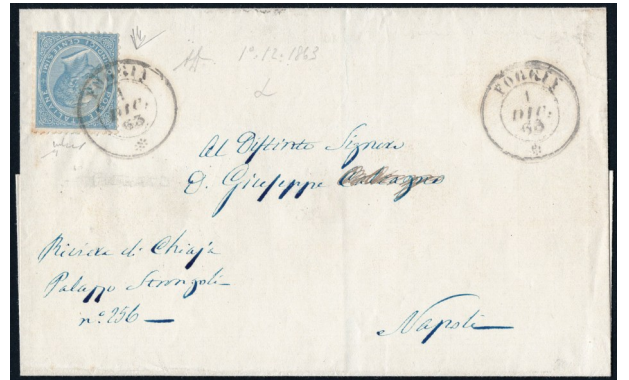 1º.12.1863
FOGGIA
1
DIC.
63
FOGGIA
1
DIC.
63
Al Distinto Signore
D. Giuseppe
Riviera di Chiaja
Palazzo Strongoli
nº. 256
Napoli